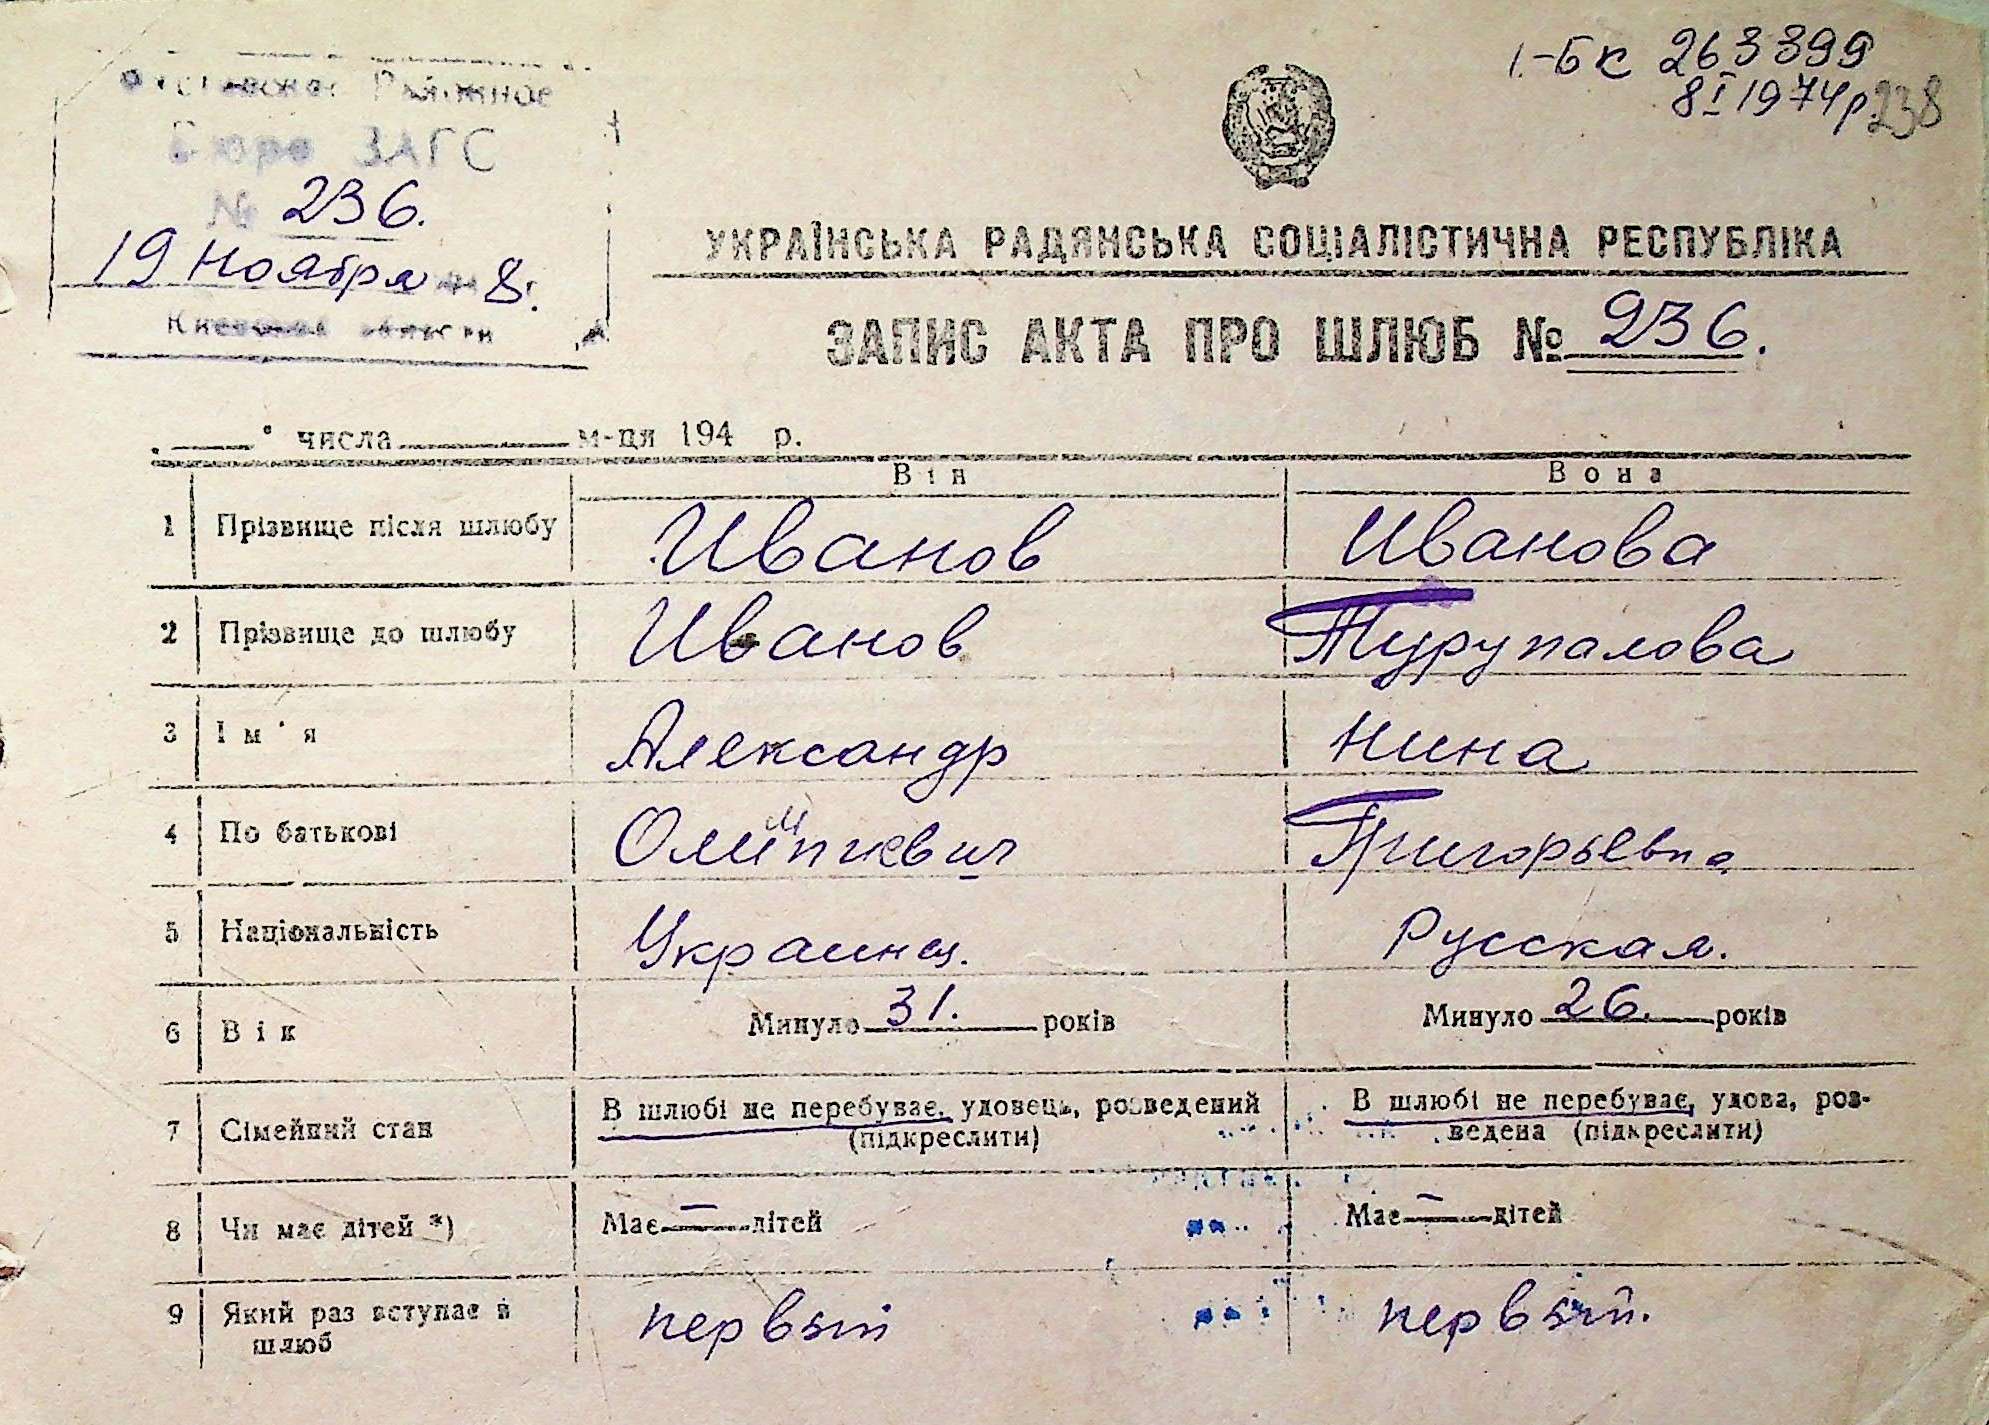 Районное
Бюро ЗАГС
№ 236.
19 Ноября 8.
Киевская области
1-БК 263399
8 I 1974 р.
238
УКРАЇНСЬКА РАДЯНСЬКА СОЦІАЛІСТИЧНА РЕСПУБЛІКА
ЗАПИС АКТА ПРО ШЛЮБ № 236.
" числа м-ця 194 р.
Він Вона
1 Прізвище після шлюбу Иванов Иванова
2 Прізвище до шлюбу Иванов Турупалова
3 Ім'я Александр Нина
4 По батькові Олимпиевич Григорьевна
5 Національність Украинец. Русская.
6 Вік Минуло 31. років Минуло 26. років
7 Сімейний стан В шлюбі не перебуває, удовець, розведений (підкреслити) В шлюбі не перебуває, удова, роз-
ведена (підкреслити)
8 Чи має дітей *) Має — дітей Має — дітей
9 Який раз вступає в шлюб первый первый.